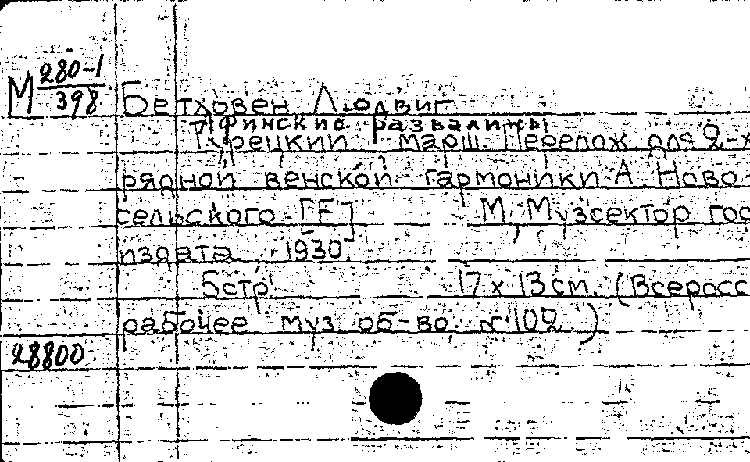 М 280-1
398
Бетховен Людвиг
Афинские развалины
Турецкий марш. Перелож для 2-х
рядной венской гармоники А. Ново
сельского ГЕ]
М, Музсектор гос
издата 1930
5стр 17 х 13 см. (Всеросс
рабочее муз об-во. № 102)
28800